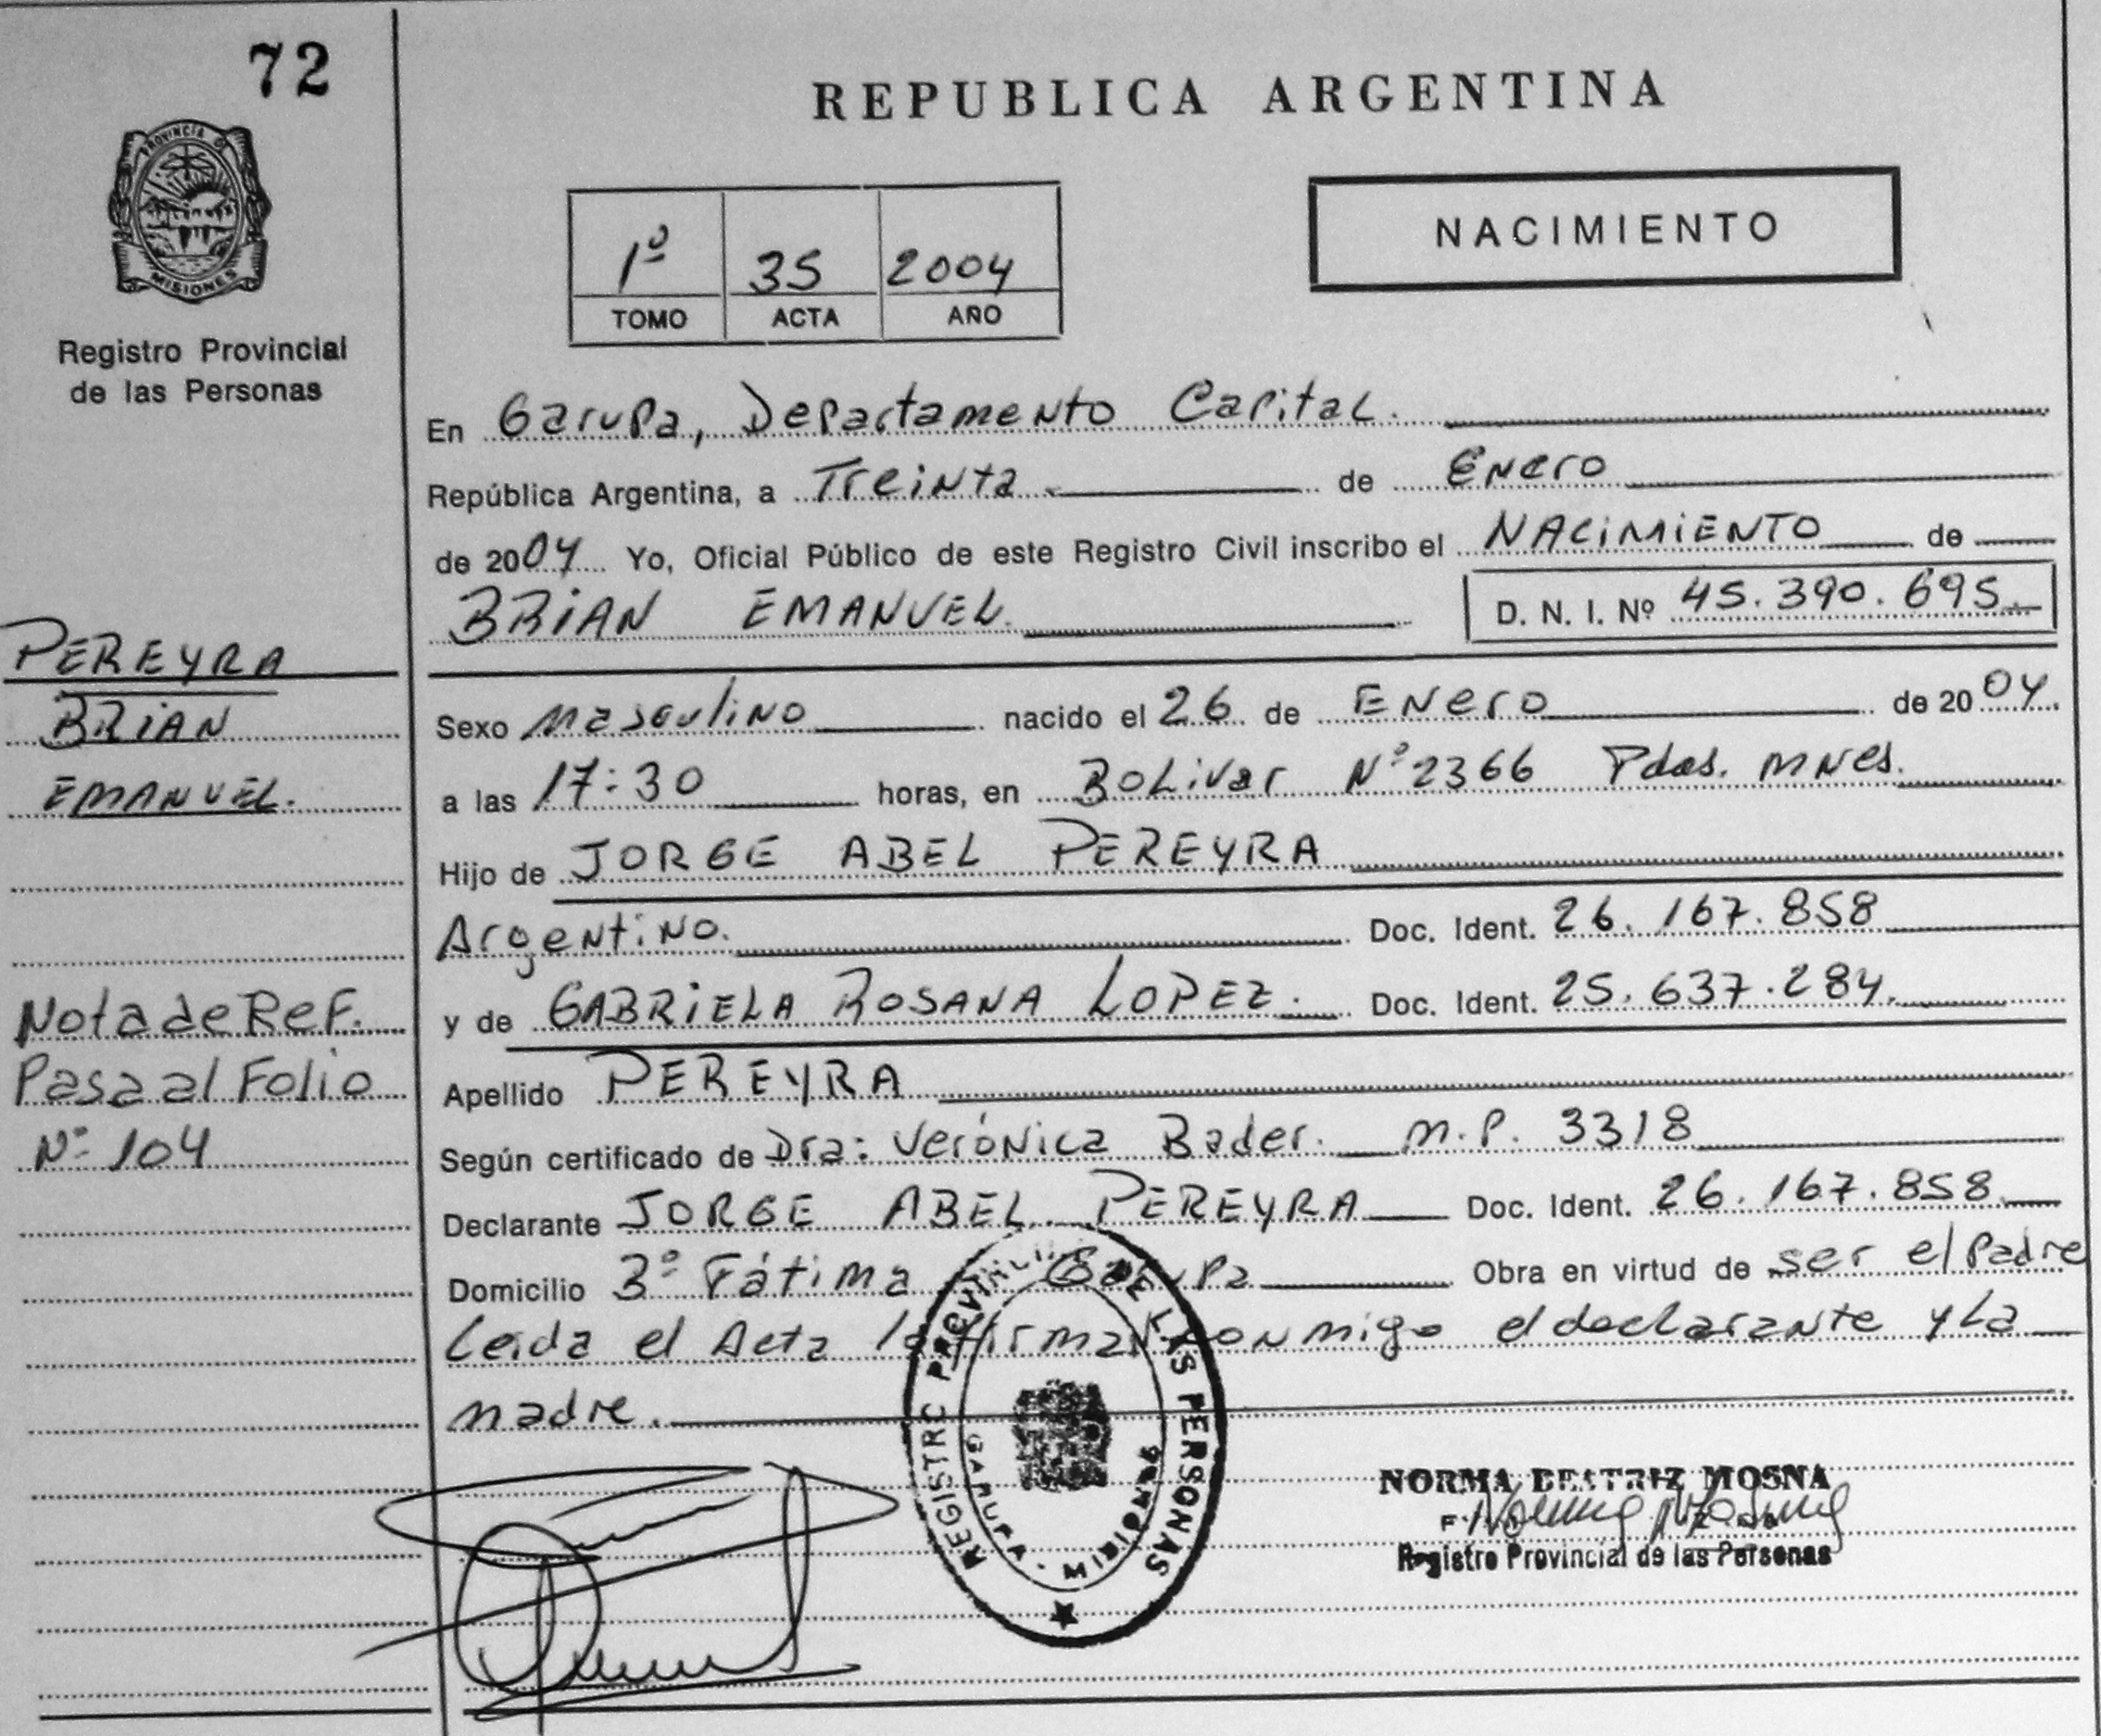 72
REPUBLICA ARGENTINA
PROVINCIA DE
MISIONES
Registro Provincial
de las Personas
1º 35 2004
TOMO ACTA AÑO
NACIMIENTO
En Garupa, Departamento Capital.
República Argentina, a Treinta de Enero
de 2004 Yo, Oficial Público de este Registro Civil inscribo el NACIMIENTO de
BRIAN EMANUEL. D. N. I. Nº 45.390.695
PEREYRA
BRIAN
EMANUEL.
Sexo masculino nacido el 26 de Enero de 2004.
a las 17:30 horas, en Bolivar Nº 2366 Pdas. mnes.
Hijo de JORGE ABEL PEREYRA
Argentino. Doc. Ident. 26.167.858
y de GABRIELA ROSANA LOPEZ. Doc. Ident. 25.637.284.
Nota de Ref.
Pasa al Folio
Nº 104
Apellido PEREYRA
Según certificado de Dra: Verónica Bader. m.p. 3318
Declarante JORGE ABEL PEREYRA Doc. Ident. 26.167.858
Domicilio Bº Fátima Garupa Obra en virtud de ser el Padre
Leida el Acta la firman conmigo el declarante y la
madre.
REGISTRO PROVINCIAL DE LAS PERSONAS
GARUPA - MISIONES
NORMA BEATRIZ MOSNA
Registro Provincial de las Personas